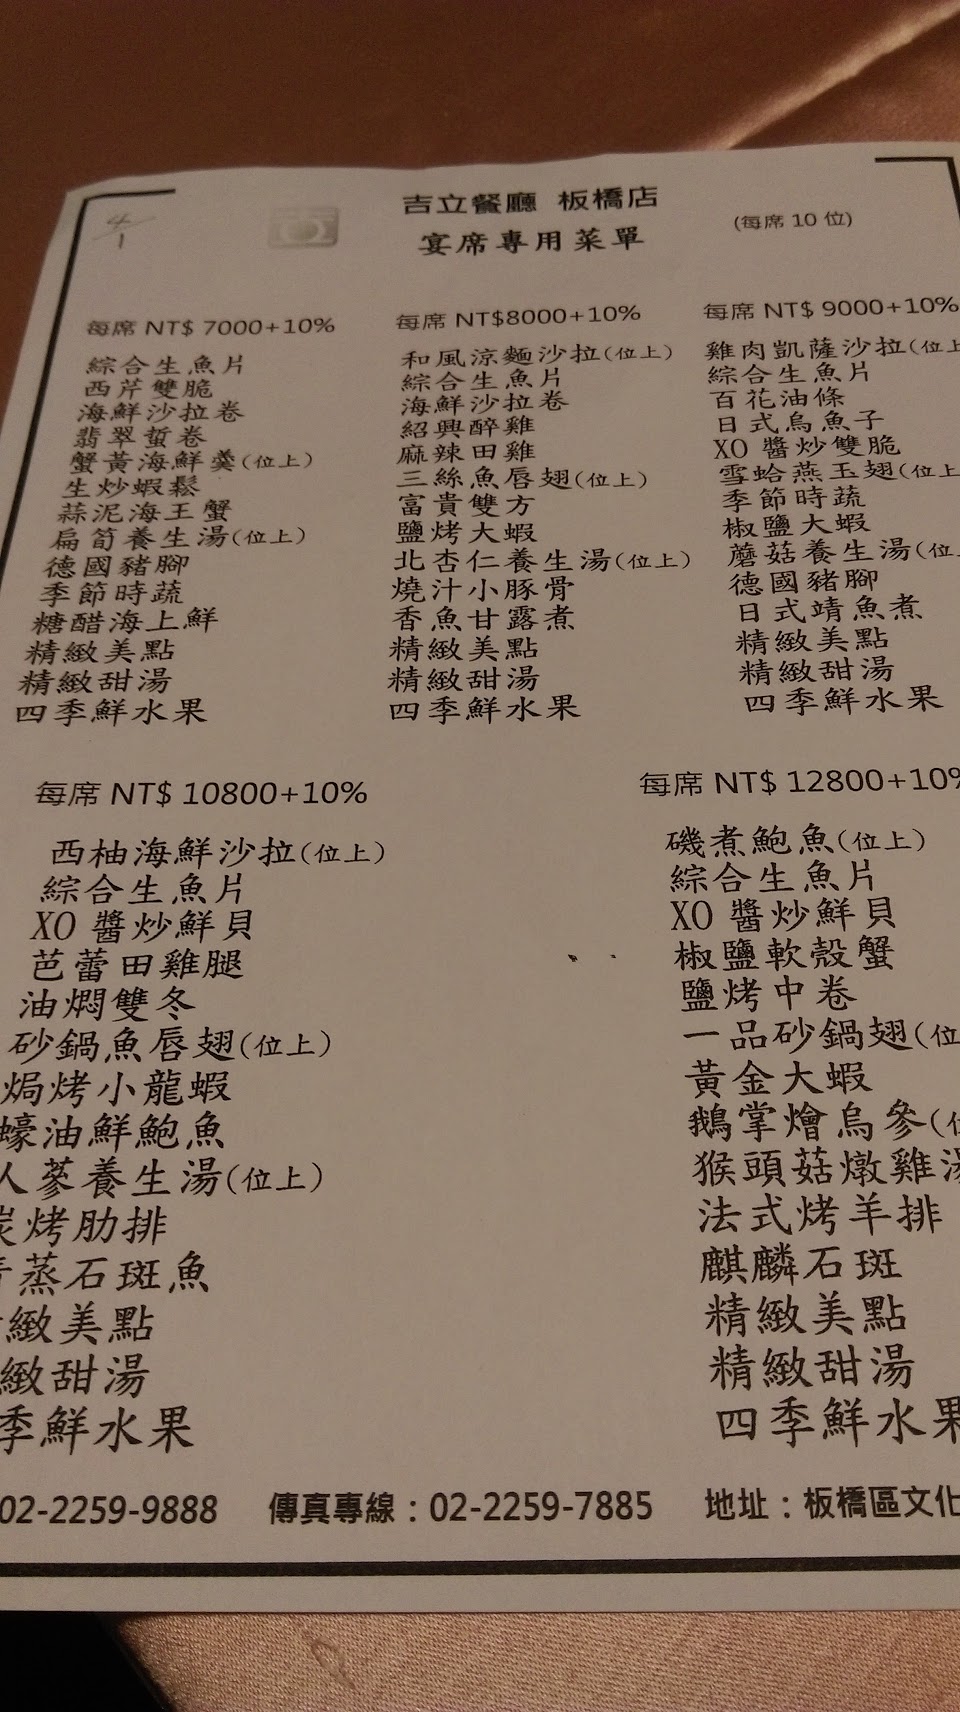 吉立餐廳 板橋店
宴席專用菜單
(每席 10 位)
4/1
每席 NT$ 7000+10%
綜合生魚片
西芹雙脆
海鮮沙拉卷
翡翠蜇卷
蟹黃海鮮羹(位上)
生炒蝦鬆
蒜泥海王蟹
扁筍養生湯(位上)
德國豬腳
季節時蔬
糖醋海上鮮
精緻美點
精緻甜湯
四季鮮水果
每席 NT$8000+10%
和風涼麵沙拉(位上)
綜合生魚片
海鮮沙拉卷
紹興醉雞
麻辣田雞
三絲魚唇翅(位上)
富貴雙方
鹽烤大蝦
北杏仁養生湯(位上)
燒汁小豚骨
香魚甘露煮
精緻美點
精緻甜湯
四季鮮水果
每席 NT$ 9000+10%
雞肉凱薩沙拉(位上
綜合生魚片
百花油條
日式烏魚子
XO 醬炒雙脆
雪蛤燕玉翅(位上
季節時蔬
椒鹽大蝦
蘑菇養生湯(位
德國豬腳
日式靖魚煮
精緻美點
精緻甜湯
四季鮮水果
每席 NT$ 10800+10%
西柚海鮮沙拉(位上)
綜合生魚片
XO 醬炒鮮貝
芭蕾田雞腿
油燜雙冬
砂鍋魚唇翅(位上)
焗烤小龍蝦
蠔油鮮鮑魚
人蔘養生湯(位上)
炭烤肋排
蒸石斑魚
緻美點
緻甜湯
季鮮水果
每席 NT$ 12800+10%
磯煮鮑魚(位上)
綜合生魚片
XO 醬炒鮮貝
椒鹽軟殼蟹
鹽烤中卷
一品砂鍋翅(位
黃金大蝦
鵝掌燴烏參(位
猴頭菇燉雞湯
法式烤羊排
麒麟石斑
精緻美點
精緻甜湯
四季鮮水果
02-2259-9888 傳真專線：02-2259-7885 地址：板橋區文化